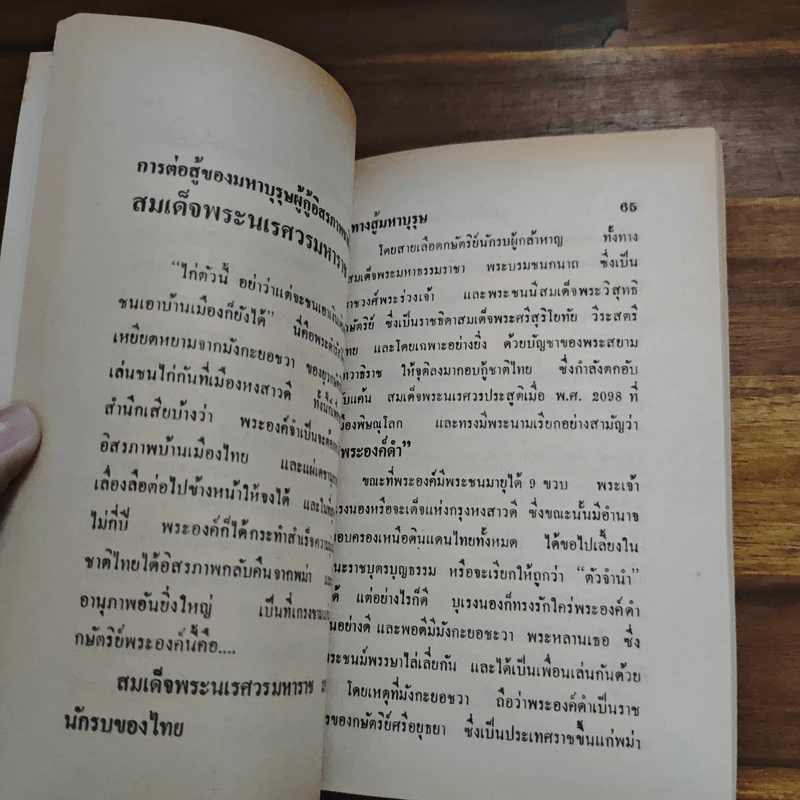 การต่อสู้ของมหาบุรุษผู้กู้อิสรภาพ
สมเด็จพระนเรศวรมหาราช
"ไก่ตัวนี้ อย่าว่าแต่จะชนเอาเงิน
ชนเอาบ้านเมืองก็ยังได้" นี่คือพระดำรัส
เหยียดหยามจากมังกะยอชวา ของยุวกษัตริย์
เล่นชนไก่กันที่เมืองหงสาวดี ทั้งนี้
สำนึกเสียบ้างว่า พระองค์จำเป็นจะต้อง
อิสรภาพบ้านเมืองไทย และแผ่เดชานุภาพ
เลื่องลือต่อไปข้างหน้าให้จงได้ และในที่สุด
ไม่กี่ปี พระองค์ก็ได้กระทำสำเร็จความ
ชาติไทยได้อิสรภาพกลับคืนจากพม่า
อานุภาพอันยิ่งใหญ่ เป็นที่เกรงขาม
กษัตริย์พระองค์นี้คือ....
สมเด็จพระนเรศวรมหาราช
นักรบของไทย
ทางสู้มหาบุรุษ 65
โดยสายเลือดกษัตริย์นักรบผู้กล้าหาญ ทั้งทาง
สมเด็จพระมหาธรรมราชา พระบรมชนกนาถ ซึ่งเป็น
ราชวงศ์พระร่วงเจ้า และพระชนนีสมเด็จพระวิสุทธิ
กษัตริย์ ซึ่งเป็นราชธิดาสมเด็จพระศรีสุริโยทัย วีระสตรี
ไทย และโดยเฉพาะอย่างยิ่ง ด้วยบัญชาของพระสยาม
เทวาธิราช ให้จุติลงมากอบกู้ชาติไทย ซึ่งกำลังตกอับ
คับแค้น สมเด็จพระนเรศวรประสูติเมื่อ พ.ศ. 2098 ที่
เมืองพิษณุโลก และทรงมีพระนามเรียกอย่างสามัญว่า
"พระองค์ดำ"
ขณะที่พระองค์มีพระชนมายุได้ 9 ขวบ พระเจ้า
บุเรงนองหรือจะเด็จแห่งกรุงหงสาวดี ซึ่งขณะนั้นมีอำนาจ
ครอบครองเหนือดินแดนไทยทั้งหมด ได้ขอไปเลี้ยงใน
ฐานะราชบุตรบุญธรรม หรือจะเรียกให้ถูกว่า "ตัวจำนำ"
ได้ แต่อย่างไรก็ดี บุเรงนองก็ทรงรักใคร่พระองค์ดำ
เป็นอย่างดี และพอดีมีมังกะยอชะวา พระหลานเธอ ซึ่ง
พระชนม์พรรษาไล่เลี่ยกัน และได้เป็นเพื่อนเล่นกันด้วย
โดยเหตุที่มังกะยอชวา ถือว่าพระองค์ดำเป็นราช
บุตรของกษัตริย์ศรีอยุธยา ซึ่งเป็นประเทศราชขึ้นแก่พม่า